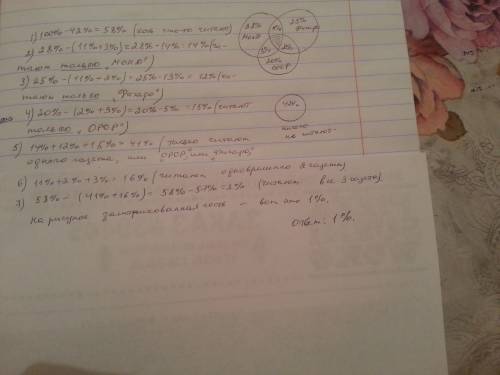 1) 100% - 42% = 58% (кол. что-то читают)
2) 28% - (11% + 3%) = 28% - 14% = 14% (чи-
тают только „Монд")
3) 25% - (11% + 2%) = 25% - 13% = 12% (чи-
тают только „Фигаро")
4) 20% - (2% + 3%) = 20% - 5% = 15% (читают
только „ОРОР")
5) 14% + 12% + 15% = 41% (только читают
одну газету, или ОРОР, или Фигаро)
6) 11% + 2% + 3% = 16% (читают одновременно 2 газеты)
7) 58% - (41% + 16%) = 58% - 57% = 1% (читают все 3 газеты)
На рисунке заштрихованная часть - вот это 1%.
Ответ: 1%.
28%
Монд
25%
Фигар
11%
3%
2%
20%
ОРОР
42%
ничего
не читают